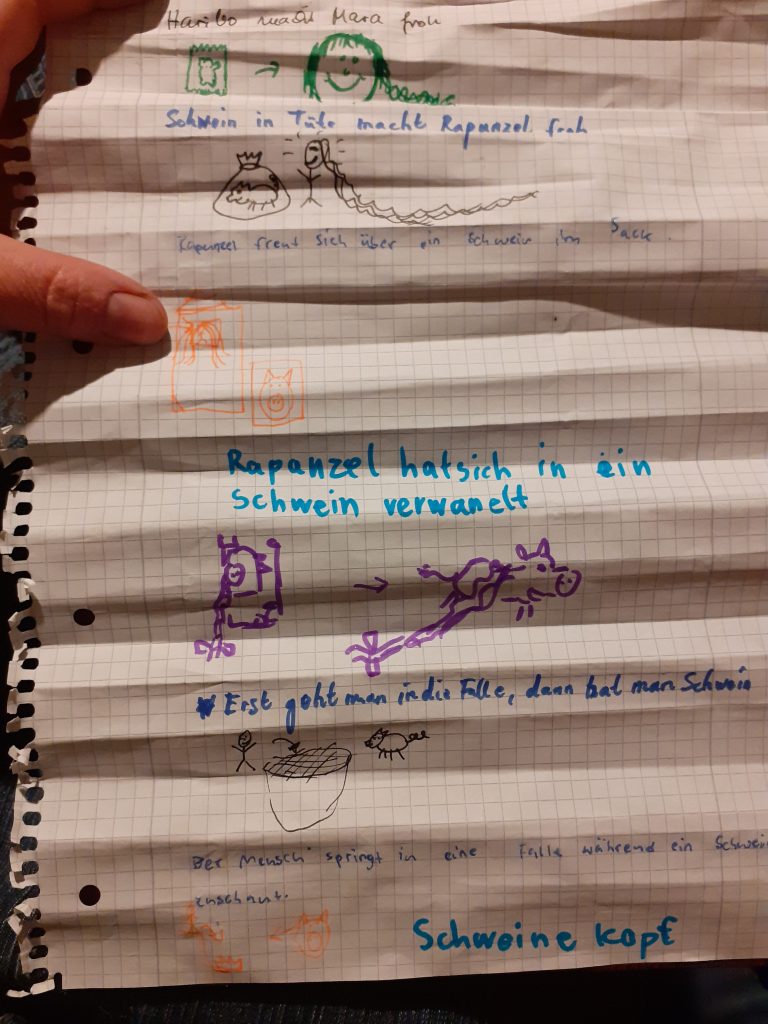 Haribo macht Mara froh
Schwein in Tüte macht Rapunzel froh
Rapunzel freut sich über ein Schwein im Sack.
Rapanzel hat sich in ein
Schwein verwanelt
Erst geht man in die Falle, dann hat man Schwein
Der Mensch springt in eine Falle während ein Schwein
zuschaut.
Schweine kopf